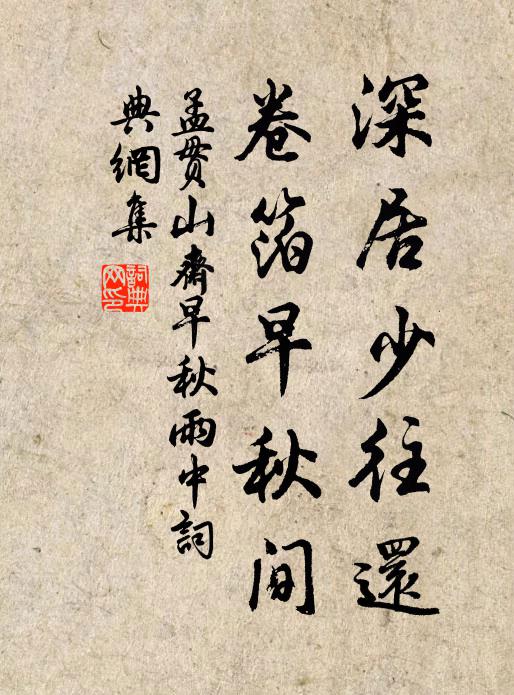 深居少往還
卷箔早秋間
孟貫山齋早秋雨中詞
典網集
詞典網印